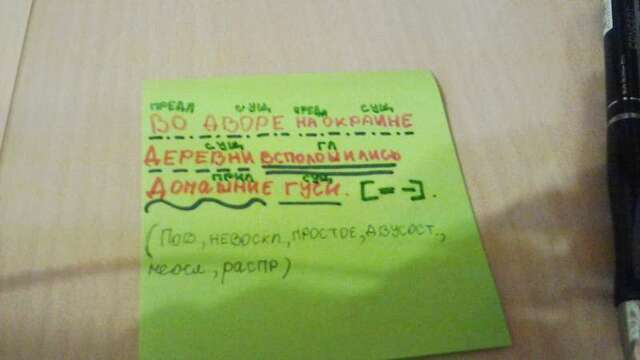 ПРЕДЛ СУЩ ПРЕДЛ СУЩ
ВО ДВОРЕ НА ОКРАИНЕ
СУЩ ГЛ
ДЕРЕВНИ ВСПОЛОШИЛИСЬ
ПРИЛ СУЩ
ДОМАШНИЕ ГУСИ. [= -].
(ПОВ, НЕВОСКЛ, ПРОСТОЕ, ДВУСОСТ.,
НЕОСЛ, РАСПР)